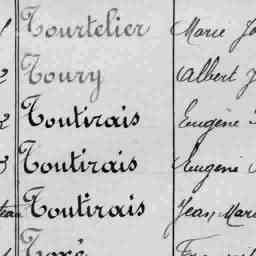 Tourtelier Marie
2 Toury Albert J
2 Toutirais Eugène
3 Toutirais Eugène
Toutirais Jean Mari
Toxé